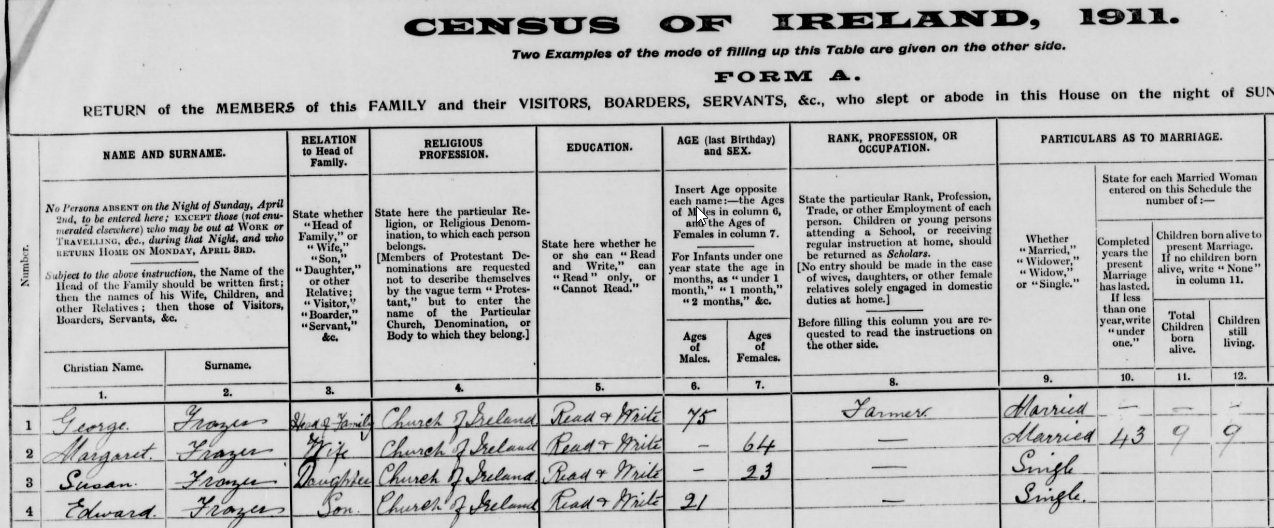 CENSUS OF IRELAND, 1911.
Two Examples of the mode of filling up this Table are given on the other side.
FORM A.
RETURN of the MEMBERS of this FAMILY and their VISITORS, BOARDERS, SERVANTS, &c., who slept or abode in this House on the night of SUN
Number.
NAME AND SURNAME.
No Persons ABSENT on the Night of Sunday, April
2nd, to be entered here; EXCEPT those (not enu-
merated elsewhere) who may be out at WORK or
TRAVELLING, &c., during that Night, and who
RETURN HOME ON MONDAY, APRIL 3RD.
Subject to the above instruction, the Name of the
Head of the Family should be written first;
then the names of his Wife, Children, and
other Relatives; then those of Visitors,
Boarders, Servants, &c.
Christian Name.
Surname.
1.
2.
RELATION
to Head of
Family.
State whether
"Head of
Family," or
"Wife,"
"Son,"
"Daughter,"
or other
Relative;
"Visitor,"
"Boarder,"
"Servant,"
&c.
3.
RELIGIOUS
PROFESSION.
State here the particular Re-
ligion, or Religious Denom-
ination, to which each person
belongs.
[Members of Protestant De-
nominations are requested
not to describe themselves
by the vague term "Protes-
tant," but to enter the
name of the Particular
Church, Denomination, or
Body to which they belong.]
4.
EDUCATION.
State here whether he
or she can "Read
and Write," can
"Read" only, or
"Cannot Read."
5.
AGE (last Birthday)
and SEX.
Insert Age opposite
each name:—the Ages
of Males in column 6,
and the Ages of
Females in column 7.
For Infants under one
year state the age in
months, as "under 1
month," "1 month,"
"2 months," &c.
Ages
of
Males.
Ages
of
Females.
6.
7.
RANK, PROFESSION, OR
OCCUPATION.
State the particular Rank, Profession,
Trade, or other Employment of each
person. Children or young persons
attending a School, or receiving
regular instruction at home, should
be returned as Scholars.
[No entry should be made in the case
of wives, daughters, or other female
relatives solely engaged in domestic
duties at home.]
Before filling this column you are re-
quested to read the instructions on
the other side.
8.
PARTICULARS AS TO MARRIAGE.
Whether
"Married,"
"Widower,"
"Widow,"
or "Single."
9.
State for each Married Woman
entered on this Schedule the
number of :—
Completed
years the
present
Marriage
has lasted.
If less
than one
year, write
"under
one."
10.
Children born alive to
present Marriage.
If no children born
alive, write "None"
in column 11.
Total
Children
born
alive.
11.
Children
still
living.
12.
1 George. Frazer Head of Family Church of Ireland Read & Write 75 Farmer. Married – – –
2 Margaret. Frazer Wife Church of Ireland Read & Write – 64 — Married 43 9 9
3 Susan. Frazer Daughter Church of Ireland Read & Write – 23 — Single
4 Edward. Frazer Son. Church of Ireland Read & Write 21 – Single.